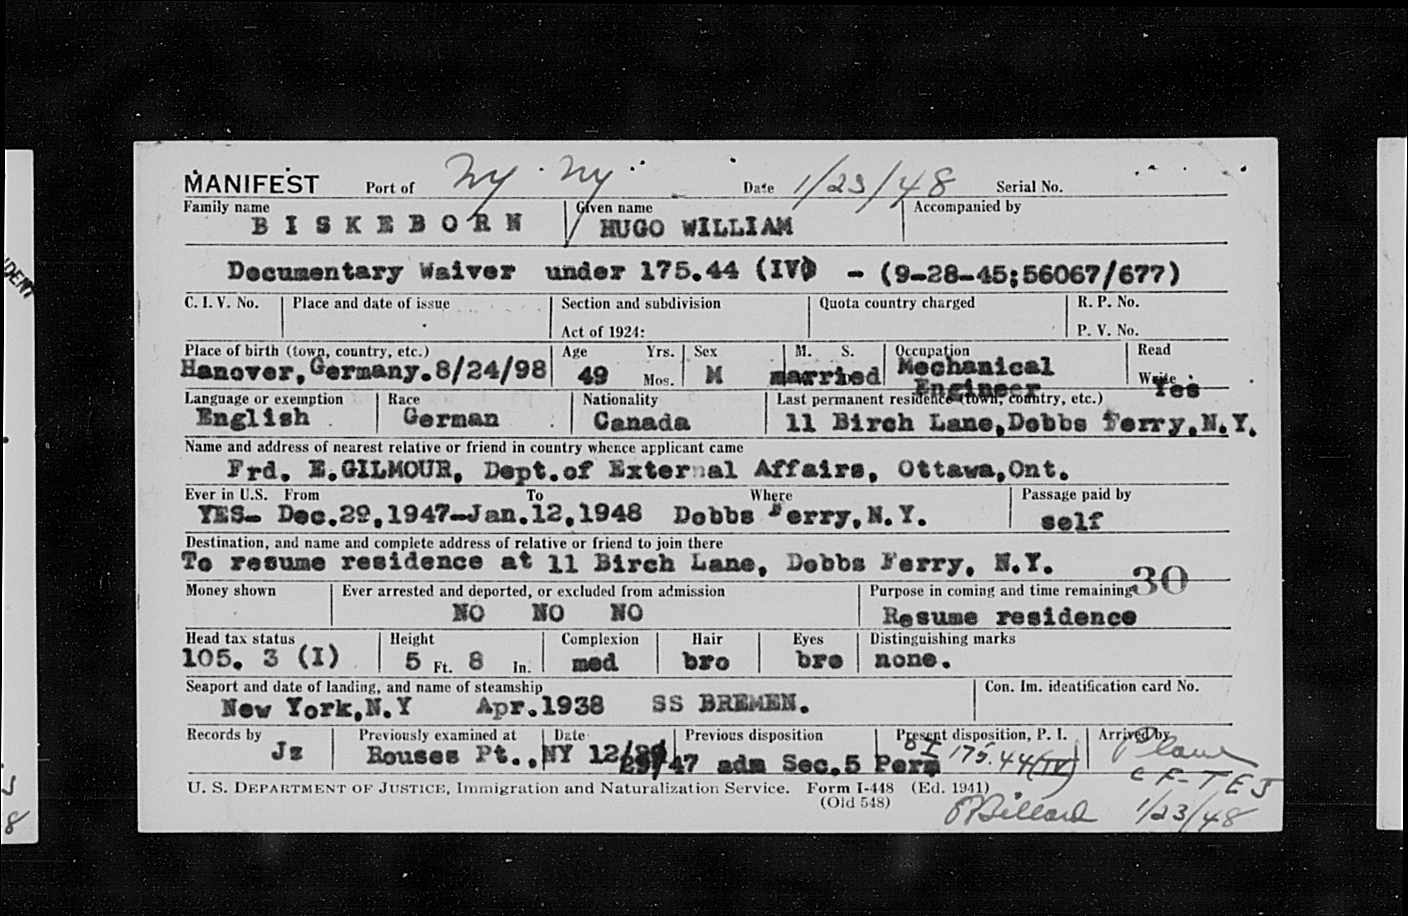 MANIFEST Port of Ny. Ny. Date 1/23/48 Serial No.
Family name Given name Accompanied by
BISKEBORN HUGO WILLIAM
Documentary Waiver under 175.44 (IV) - (9-28-45;56067/677)
C. I. V. No. Place and date of issue Section and subdivision Quota country charged R. P. No.
Act of 1924: P. V. No.
Place of birth (town, country, etc.) Age Yrs. Sex M. S. Occupation Read
Hanover, Germany. 8/24/98 49 Mos. M married Mechanical Engineer Write Yes
Language or exemption Race Nationality Last permanent residence (town, country, etc.)
English German Canada 11 Birch Lane, Dobbs Ferry, N.Y.
Name and address of nearest relative or friend in country whence applicant came
Frd. E. GILMOUR, Dept. of External Affairs, Ottawa, Ont.
Ever in U.S. From To Where Passage paid by
YES- Dec.29,1947-Jan.12,1948 Dobbs Ferry, N.Y. self
Destination, and name and complete address of relative or friend to join there
To resume residence at 11 Birch Lane, Dobbs Ferry, N.Y.
30
Money shown Ever arrested and deported, or excluded from admission Purpose in coming and time remaining
NO NO NO Resume residence
Head tax status Height Complexion Hair Eyes Distinguishing marks
105. 3 (I) 5 Ft. 8 In. med bro bro none.
Seaport and date of landing, and name of steamship Con. Im. identification card No.
New York, N.Y Apr.1938 SS BREMEN.
Records by Previously examined at Date Previous disposition Present disposition, P. I. Arrived by
Jz Rouses Pt., NY 12/29/47 adm Sec.5 Perm 175.44(IV) Plane
CF-TEJ
U. S. DEPARTMENT OF JUSTICE, Immigration and Naturalization Service. Form I-448 (Ed. 1941)
(Old 548) 1/23/48